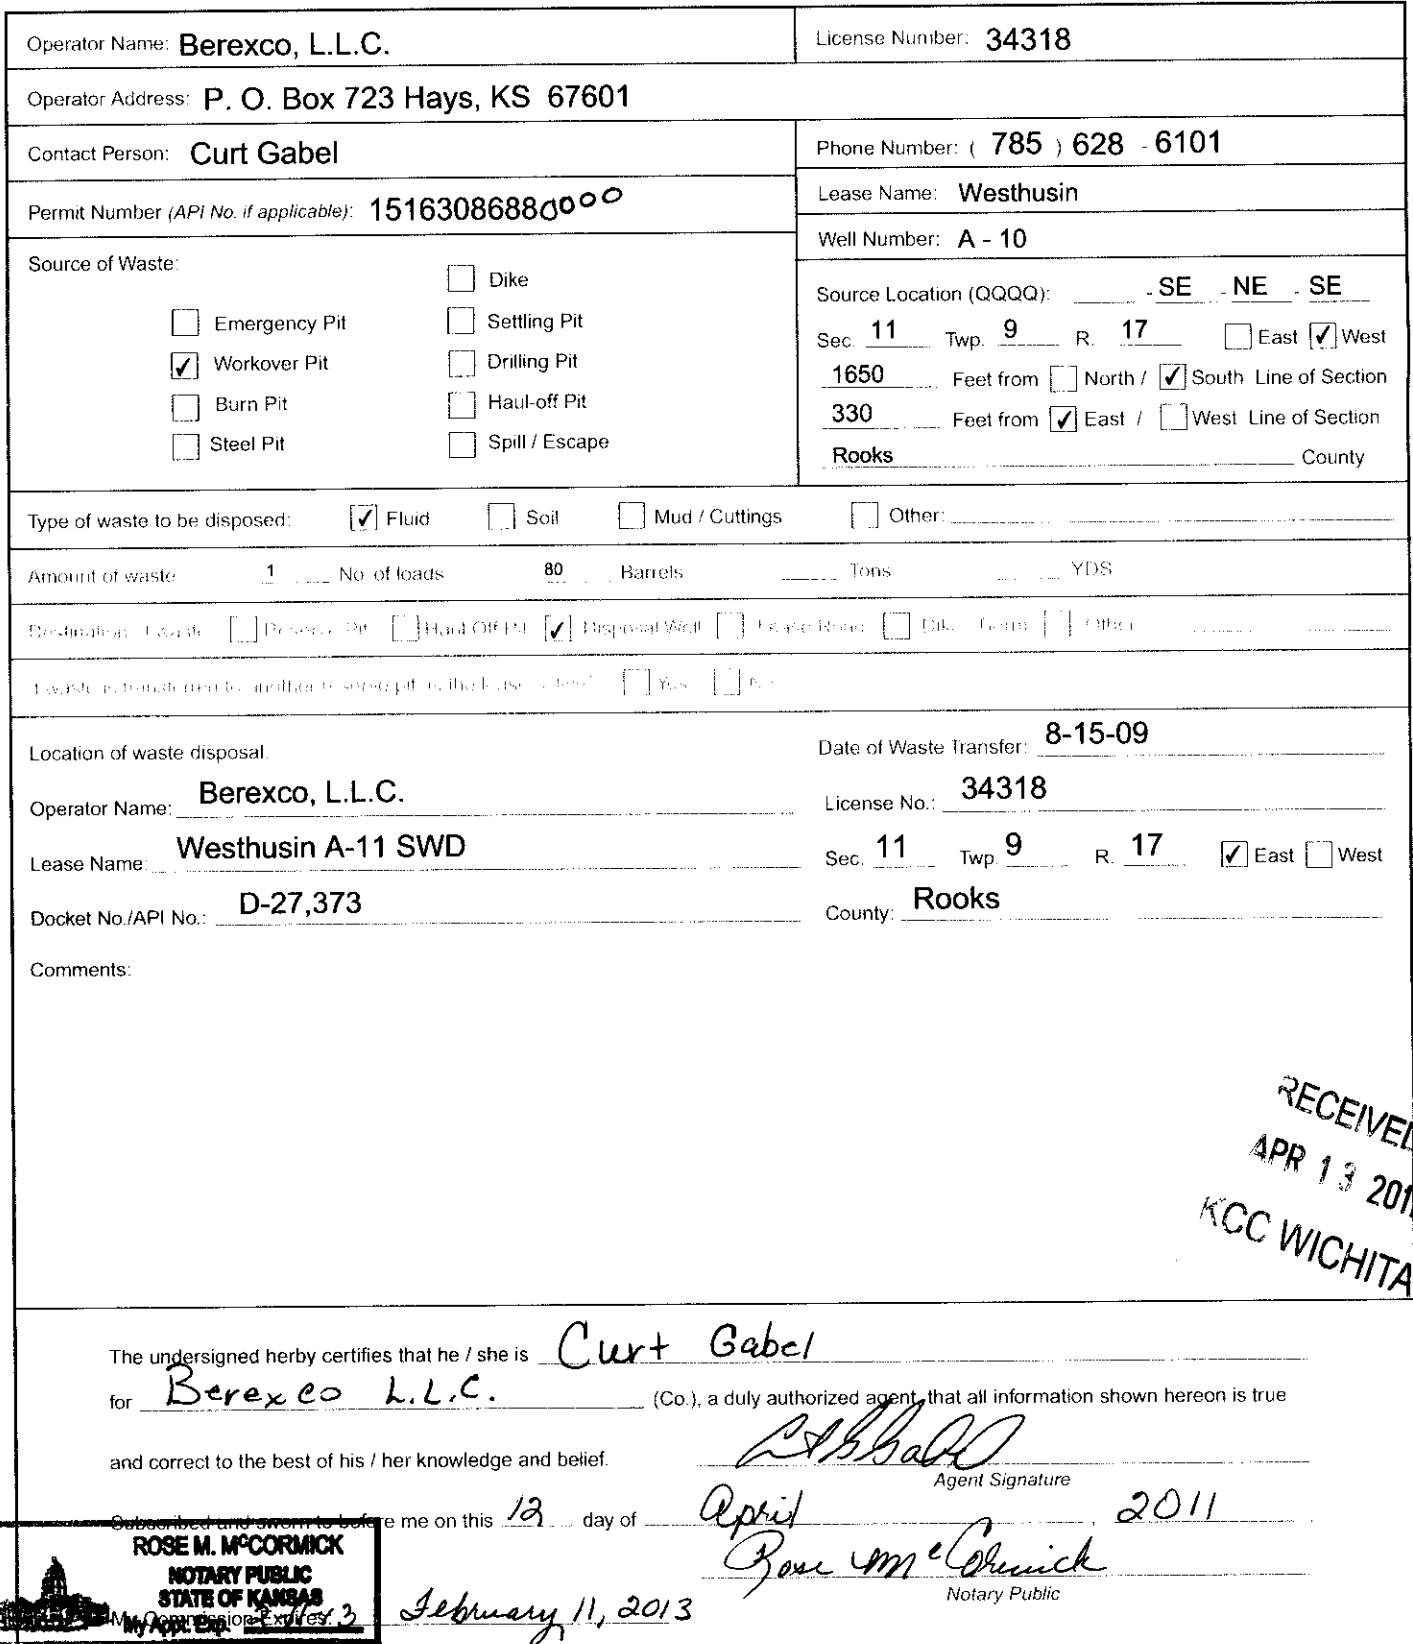 Operator Name: Berexco, L.L.C. License Number: 34318
Operator Address: P. O. Box 723 Hays, KS 67601
Contact Person: Curt Gabel Phone Number: ( 785 ) 628 - 6101
Permit Number (API No. if applicable): 15163086880000 Lease Name: Westhusin
Well Number: A - 10
Source of Waste:
Dike
Emergency Pit Settling Pit
✓ Workover Pit Drilling Pit
Burn Pit Haul-off Pit
Steel Pit Spill / Escape
Source Location (QQQQ): - SE - NE - SE
Sec. 11 Twp. 9 R. 17 East ✓ West
1650 Feet from North / ✓ South Line of Section
330 Feet from ✓ East / West Line of Section
Rooks County
Type of waste to be disposed: ✓ Fluid Soil Mud / Cuttings Other:
Amount of waste 1 No. of loads 80 Barrels Tons YDS
Destination Pit Haul Off Pit ✓ Disposal Well Lease Road Other
Yes
Location of waste disposal. Date of Waste Transfer: 8-15-09
Operator Name: Berexco, L.L.C. License No.: 34318
Lease Name: Westhusin A-11 SWD Sec. 11 Twp. 9 R. 17 ✓ East West
Docket No./API No.: D-27,373 County: Rooks
Comments:
RECEIVED
APR 13 201
KCC WICHITA
The undersigned herby certifies that he / she is Curt Gabel
for Berexco L.L.C. (Co.), a duly authorized agent, that all information shown hereon is true
and correct to the best of his / her knowledge and belief.
Agent Signature
Subscribed and sworn to before me on this 12 day of April , 2011
Rose M McCormick
Notary Public
ROSE M. McCORMICK
NOTARY PUBLIC
STATE OF KANSAS
My Appt. Exp.
My Commission Expires: February 11, 2013